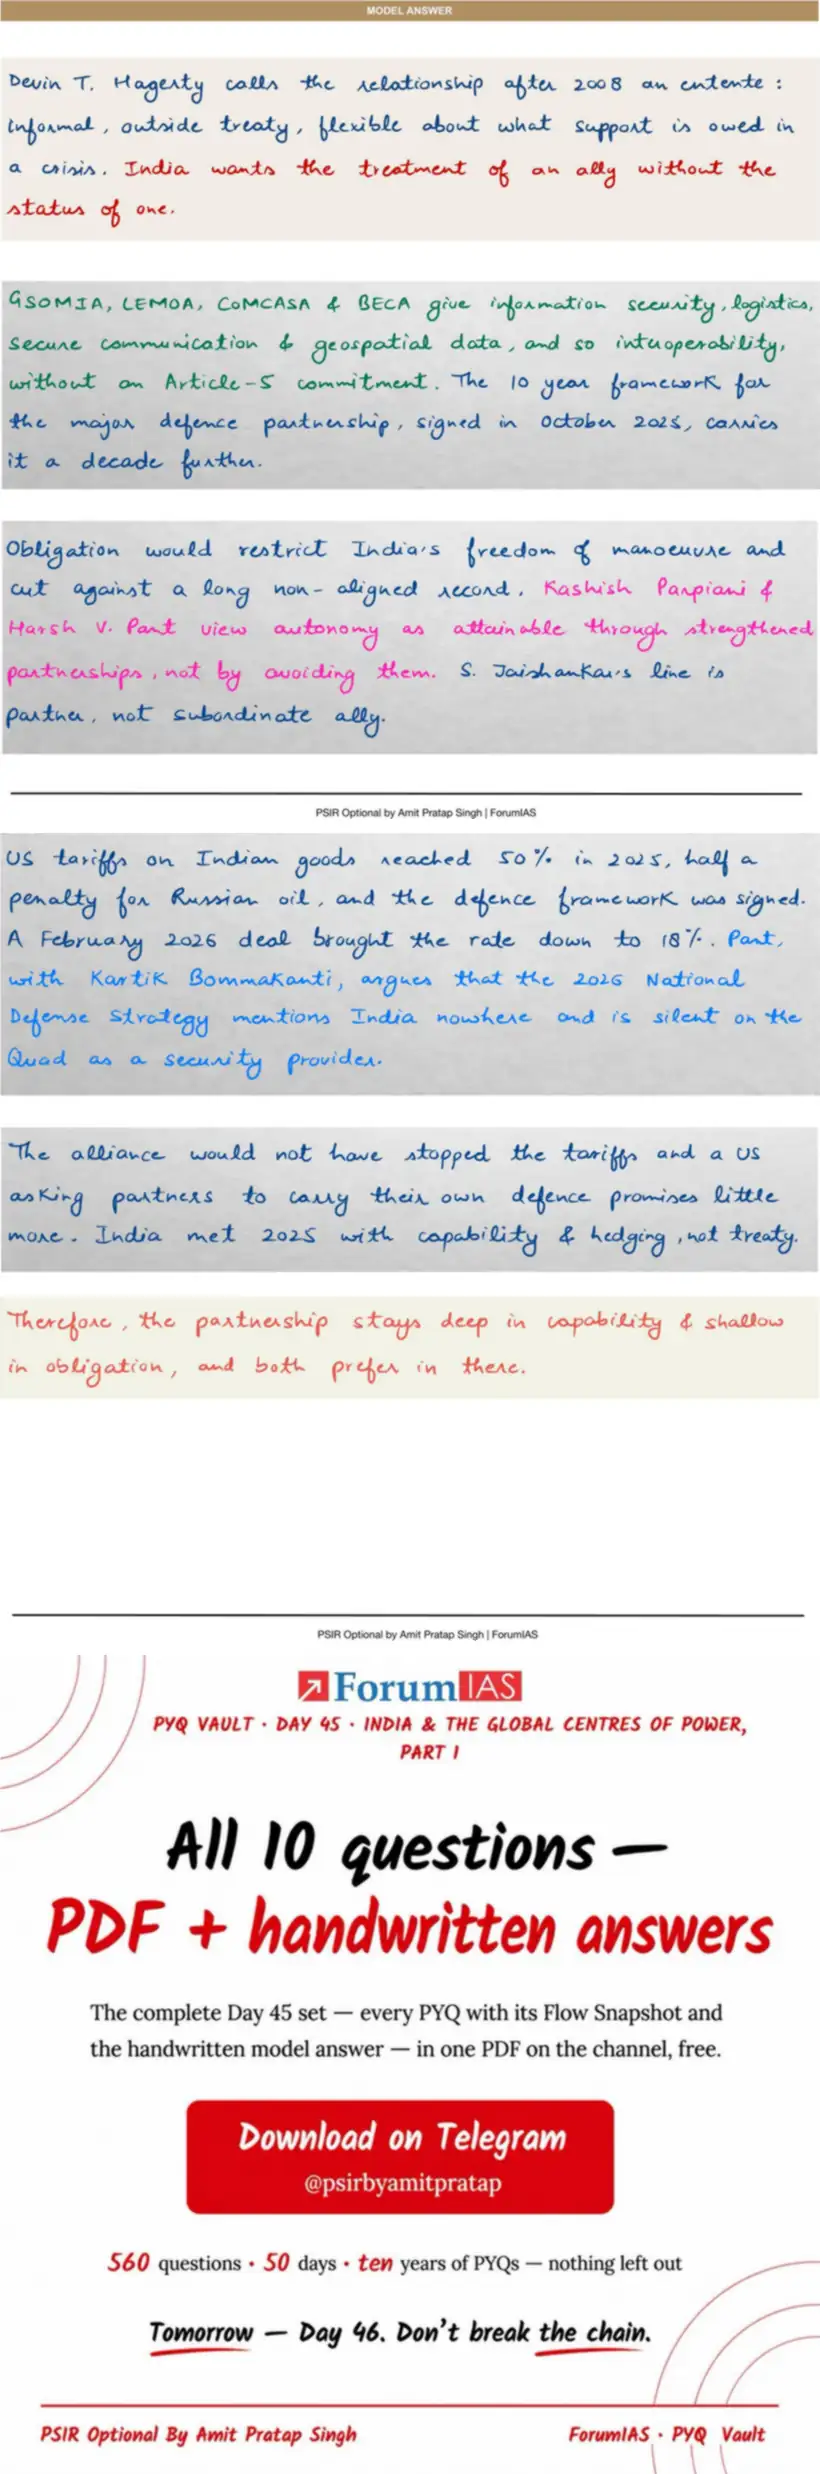 MODEL ANSWER
Devin T. Hagerty calls the relationship after 2008 an entente :
informal, outside treaty, flexible about what support is owed in
a crisis. India wants the treatment of an ally without the
status of one.
GSOMIA, LEMOA, COMCASA & BECA give information security, logistics,
secure communication & geospatial data, and so interoperability,
without an Article-5 commitment. The 10 year framework for
the major defence partnership, signed in October 2025, carries
it a decade further.
Obligation would restrict India's freedom of manoeuvre and
cut against a long non-aligned record. Kashish Parpiani &
Harsh V. Pant view autonomy as attainable through strengthened
partnerships, not by avoiding them. S. Jaishankar's line is
partner, not subordinate ally.
PSIR Optional by Amit Pratap Singh | ForumIAS
US tariffs on Indian goods reached 50% in 2025, half a
penalty for Russian oil, and the defence framework was signed.
A February 2026 deal brought the rate down to 18%. Pant,
with Kartik Bommakanti, argues that the 2026 National
Defense Strategy mentions India nowhere and is silent on the
Quad as a security provider.
The alliance would not have stopped the tariffs and a US
asking partners to carry their own defence promises little
more. India met 2025 with capability & hedging, not treaty.
Therefore, the partnership stays deep in capability & shallow
in obligation, and both prefer in there.
PSIR Optional by Amit Pratap Singh | ForumIAS
ForumIAS
PYQ VAULT · DAY 45 · INDIA & THE GLOBAL CENTRES OF POWER,
PART I
All 10 questions —
PDF + handwritten answers
The complete Day 45 set — every PYQ with its Flow Snapshot and
the handwritten model answer — in one PDF on the channel, free.
Download on Telegram
@psirbyamitpratap
560 questions · 50 days · ten years of PYQs — nothing left out
Tomorrow — Day 46. Don't break the chain.
PSIR Optional By Amit Pratap Singh
ForumIAS · PYQ Vault